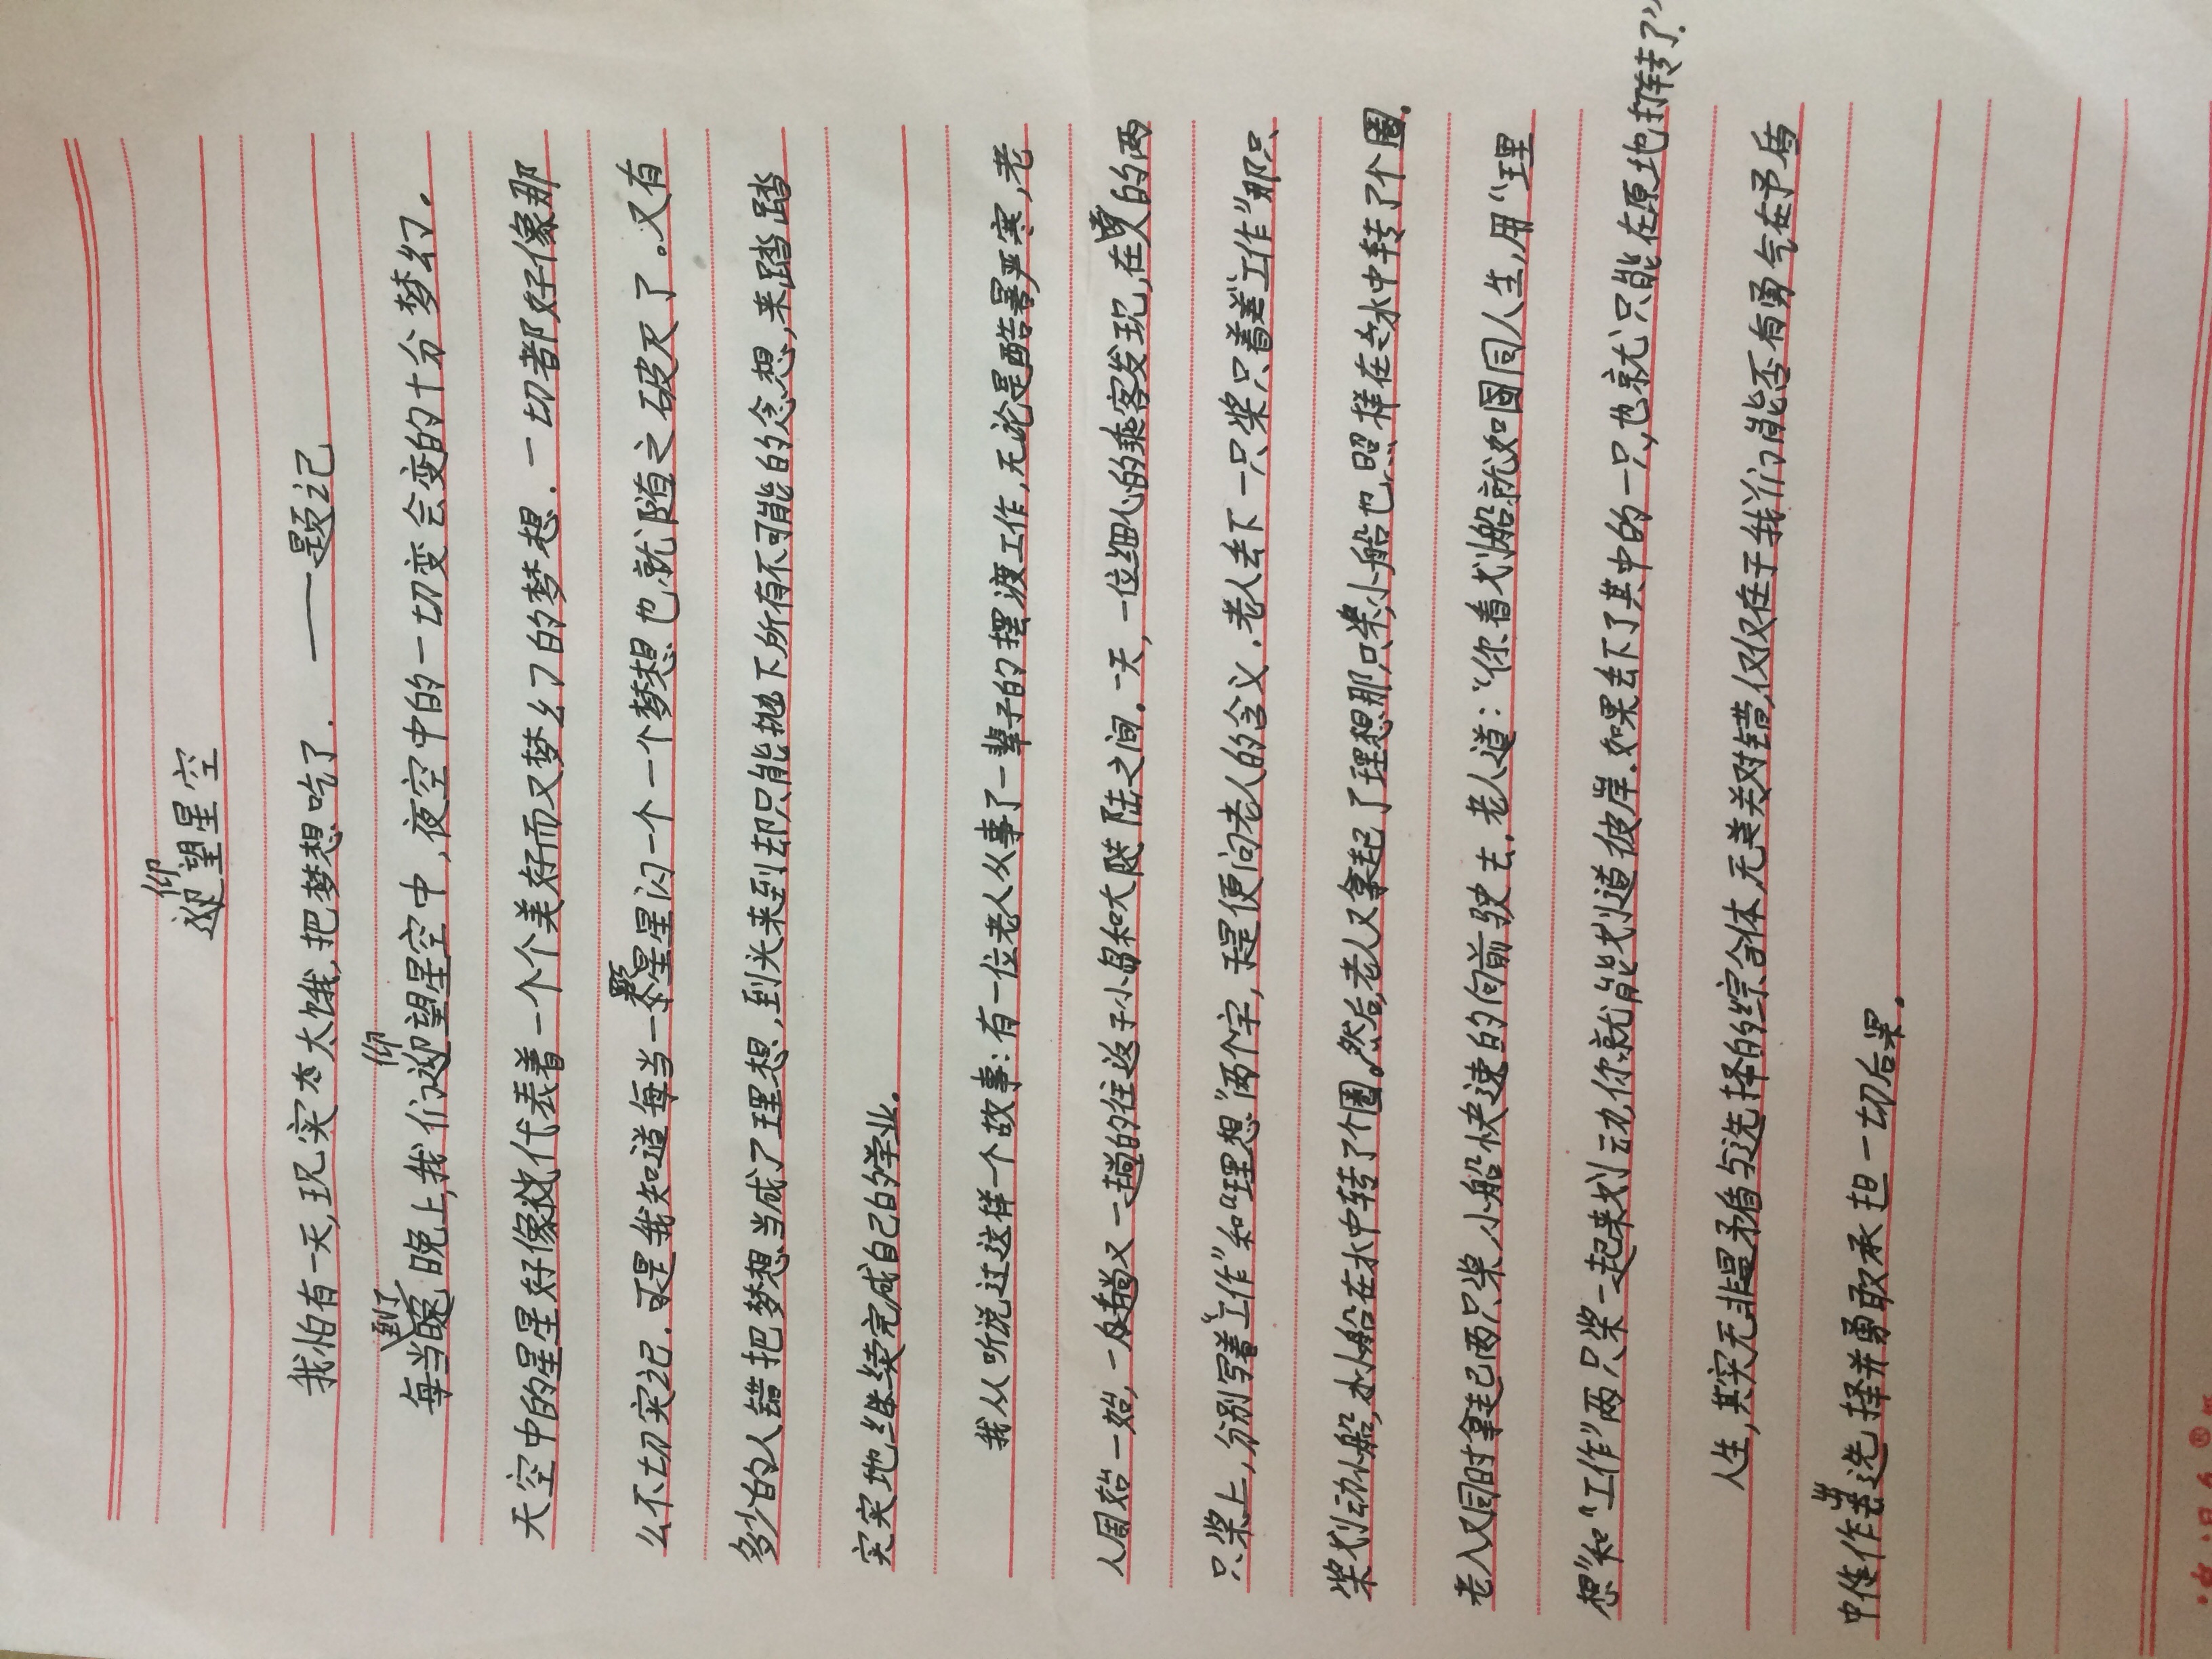 仰
迎望星空
我怕有一天,现实太太饿,把梦想吃了. ——题记
到了 仰
每当晚上,我们迎望星空中,夜空中的一切变会变的十分梦幻.
天空中的星星好像代表着一个个美好而又梦幻的梦想.一切者都好像那
么不切实记.可是我知道每当一颗星星闪一个一个梦想也就随之破灭了。又有
多少的人错把梦想当成了理想,到头来到却只能抛下所有不可能的念想,来踏踏
实实地继续完成自己的学业.
我从听说过这样一个故事:有一位老人从事了一辈子的摆渡工作,无论是酷暑严寒,老
人周始一始,一趟又一趟的往返于小岛和大陆之间.一天,一位细心的乘客发现,在的两
只桨上,分别写着"工作"和"理想"两个字,于是便问老人的含义.老人去下一只桨只着差"工作"那只
桨划动小船,小船在水中转了个圈.然后,老人又拿起了理想那只桨,小船也照样在水中转了个圈.
老人又同时拿起两只桨,小船快速的向前驶去.老人道:"你看划船就如同人生,用"理
想"和"工作"两只桨一起来划动,你就能划道彼岸.如果去下了其中的一只,也就只能在原地打转了."
人生,其实无非是矛盾与选择的综合体,无关对错,仅仅在于我们能否有勇气在予盾
中作出选择并勇敢承担一切后果.